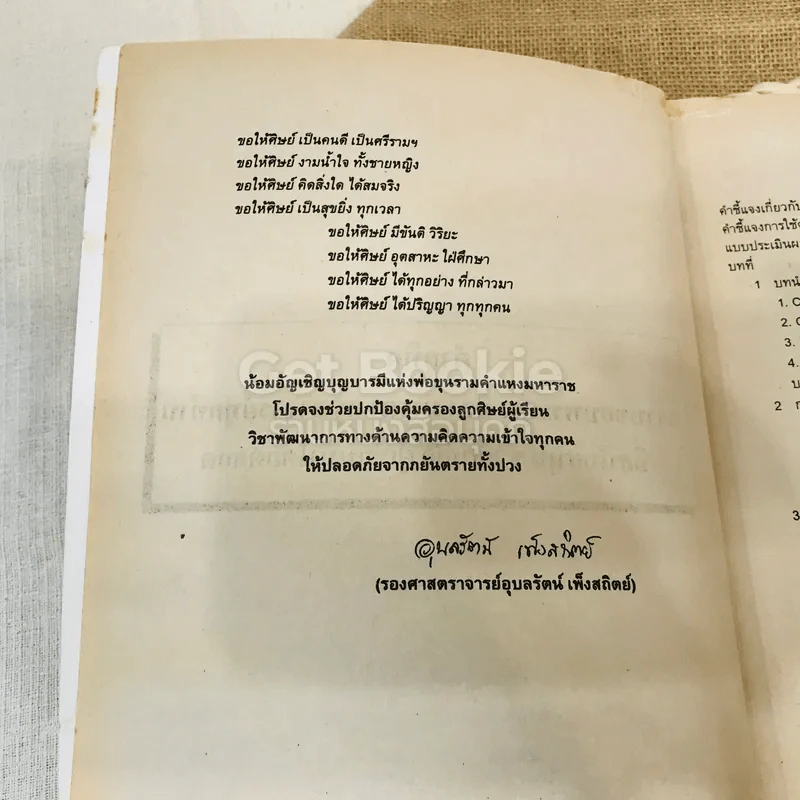 ขอให้ศิษย์ เป็นคนดี เป็นศรีรามฯ
ขอให้ศิษย์ งามน้ำใจ ทั้งชายหญิง
ขอให้ศิษย์ คิดสิ่งใด ได้สมจริง
ขอให้ศิษย์ เป็นสุขยิ่ง ทุกเวลา
ขอให้ศิษย์ มีขันติ วิริยะ
ขอให้ศิษย์ อุตสาหะ ใฝ่ศึกษา
ขอให้ศิษย์ ได้ทุกอย่าง ที่กล่าวมา
ขอให้ศิษย์ ได้ปริญญา ทุกทุกคน
Get Bookie
ร้านหนังสือบุ๊คกี้
น้อมอัญเชิญบุญบารมีแห่งพ่อขุนรามคำแหงมหาราช
โปรดจงช่วยปกป้องคุ้มครองลูกศิษย์ผู้เรียน
วิชาพัฒนาการทางด้านความคิดความเข้าใจทุกคน
ให้ปลอดภัยจากภยันตรายทั้งปวง
อุบลรัตน์ เพ็งสถิตย์
(รองศาสตราจารย์อุบลรัตน์ เพ็งสถิตย์)
คำชี้แจงเกี่ยวกับ
คำชี้แจงการใช้
แบบประเมินผ
บทที่
1 บทนำ
1.
2.
3.
4.
2
3